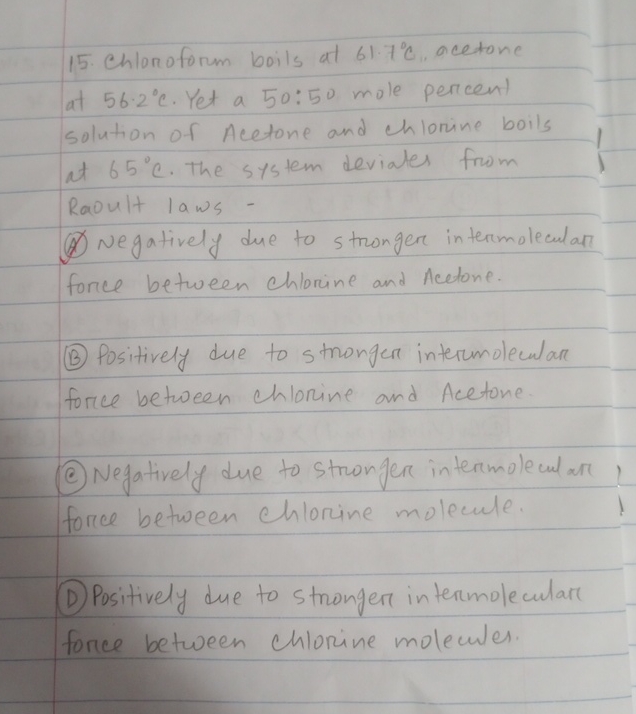 15. Chloroform boils at 61.7°C, acetone
at 56.2°C. Yet a 50:50 mole percent
solution of Acetone and chlorine boils
at 65°C. The system deviates from
Raoult laws -
(A) Negatively due to stronger intermolecular
force between chlorine and Acetone.
(B) Positively due to stronger intermolecular
force between chlorine and Acetone.
(C) Negatively due to stronger intermolecular
force between chlorine molecule.
(D) Positively due to stronger intermolecular
force between chlorine molecules.